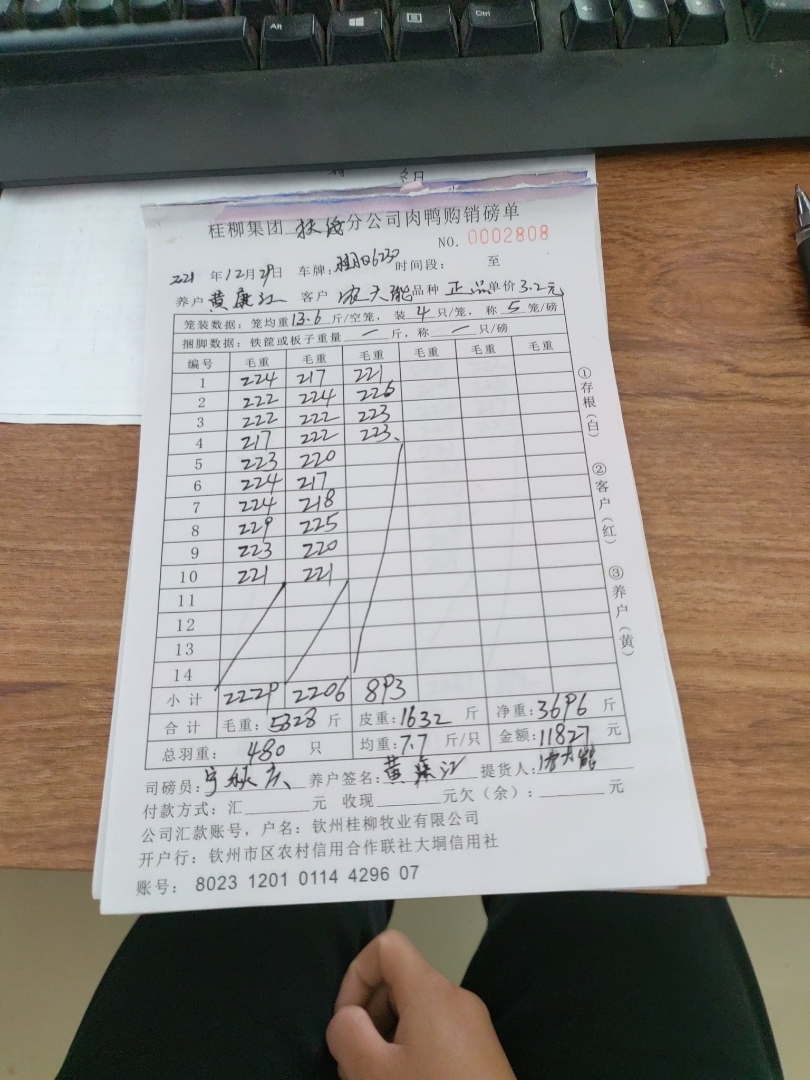 Alt
Ctrl
桂柳集团 扶绥 分公司肉鸭购销磅单
NO. 0002808
2021 年 12 月 29 日 车牌: 6230 时间段: 至
养户 黄康江 客户 农大能 品种 正品 单价 3.2元
笼装数据: 笼均重 13.6 斤/空笼, 装 4 只/笼, 称 5 笼/磅
捆脚数据: 铁筐或板子重量 一 斤, 称 一 只/磅
编号 毛重 毛重 毛重 毛重 毛重 毛重
1 224 217 221
2 222 224 226
3 222 222 223
4 217 222 223
5 223 220
6 224 217
7 224 218
8 229 225
9 223 220
10 221 221
11
12
13
14
小计 2229 2206 893
合计 毛重: 5328 斤 皮重: 1632 斤 净重: 3696 斤
总羽重: 480 只 均重: 7.7 斤/只 金额: 11827 元
司磅员: 养户签名: 黄康江 提货人: 农大能
付款方式: 汇 元 收现 元欠(余): 元
公司汇款账号, 户名: 钦州桂柳牧业有限公司
开户行: 钦州市区农村信用合作联社大垌信用社
账号: 8023 1201 0114 4296 07
①存根(白)
②客户(红)
③养户(黄)